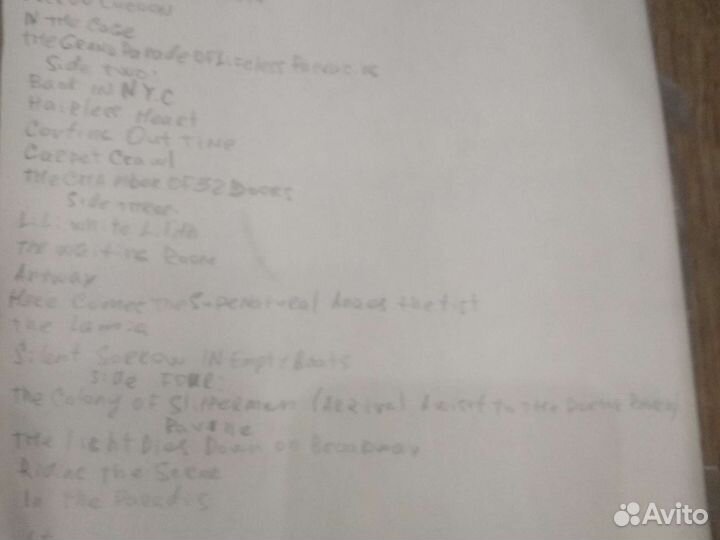 IN THE CAGE
THE GRAND PARADE OF LifeLess
Side TWO:
Back IN N.Y.C
Hairless Heart
Counting Out TIME
Carpet Crawl
THE CHAMBER OF 32 DOORS
Side THREE
THE WAITING ROOM
Anyway
Here Comes The Supernatural
The Lamia
Silent Sorrow IN Empty Boats
Side FOUR:
The Colony of Slippermen (Arrival A Visit To The Doctor Raven)
THE Light Dies Down on Broadway
Riding The Scree
In The
Avito